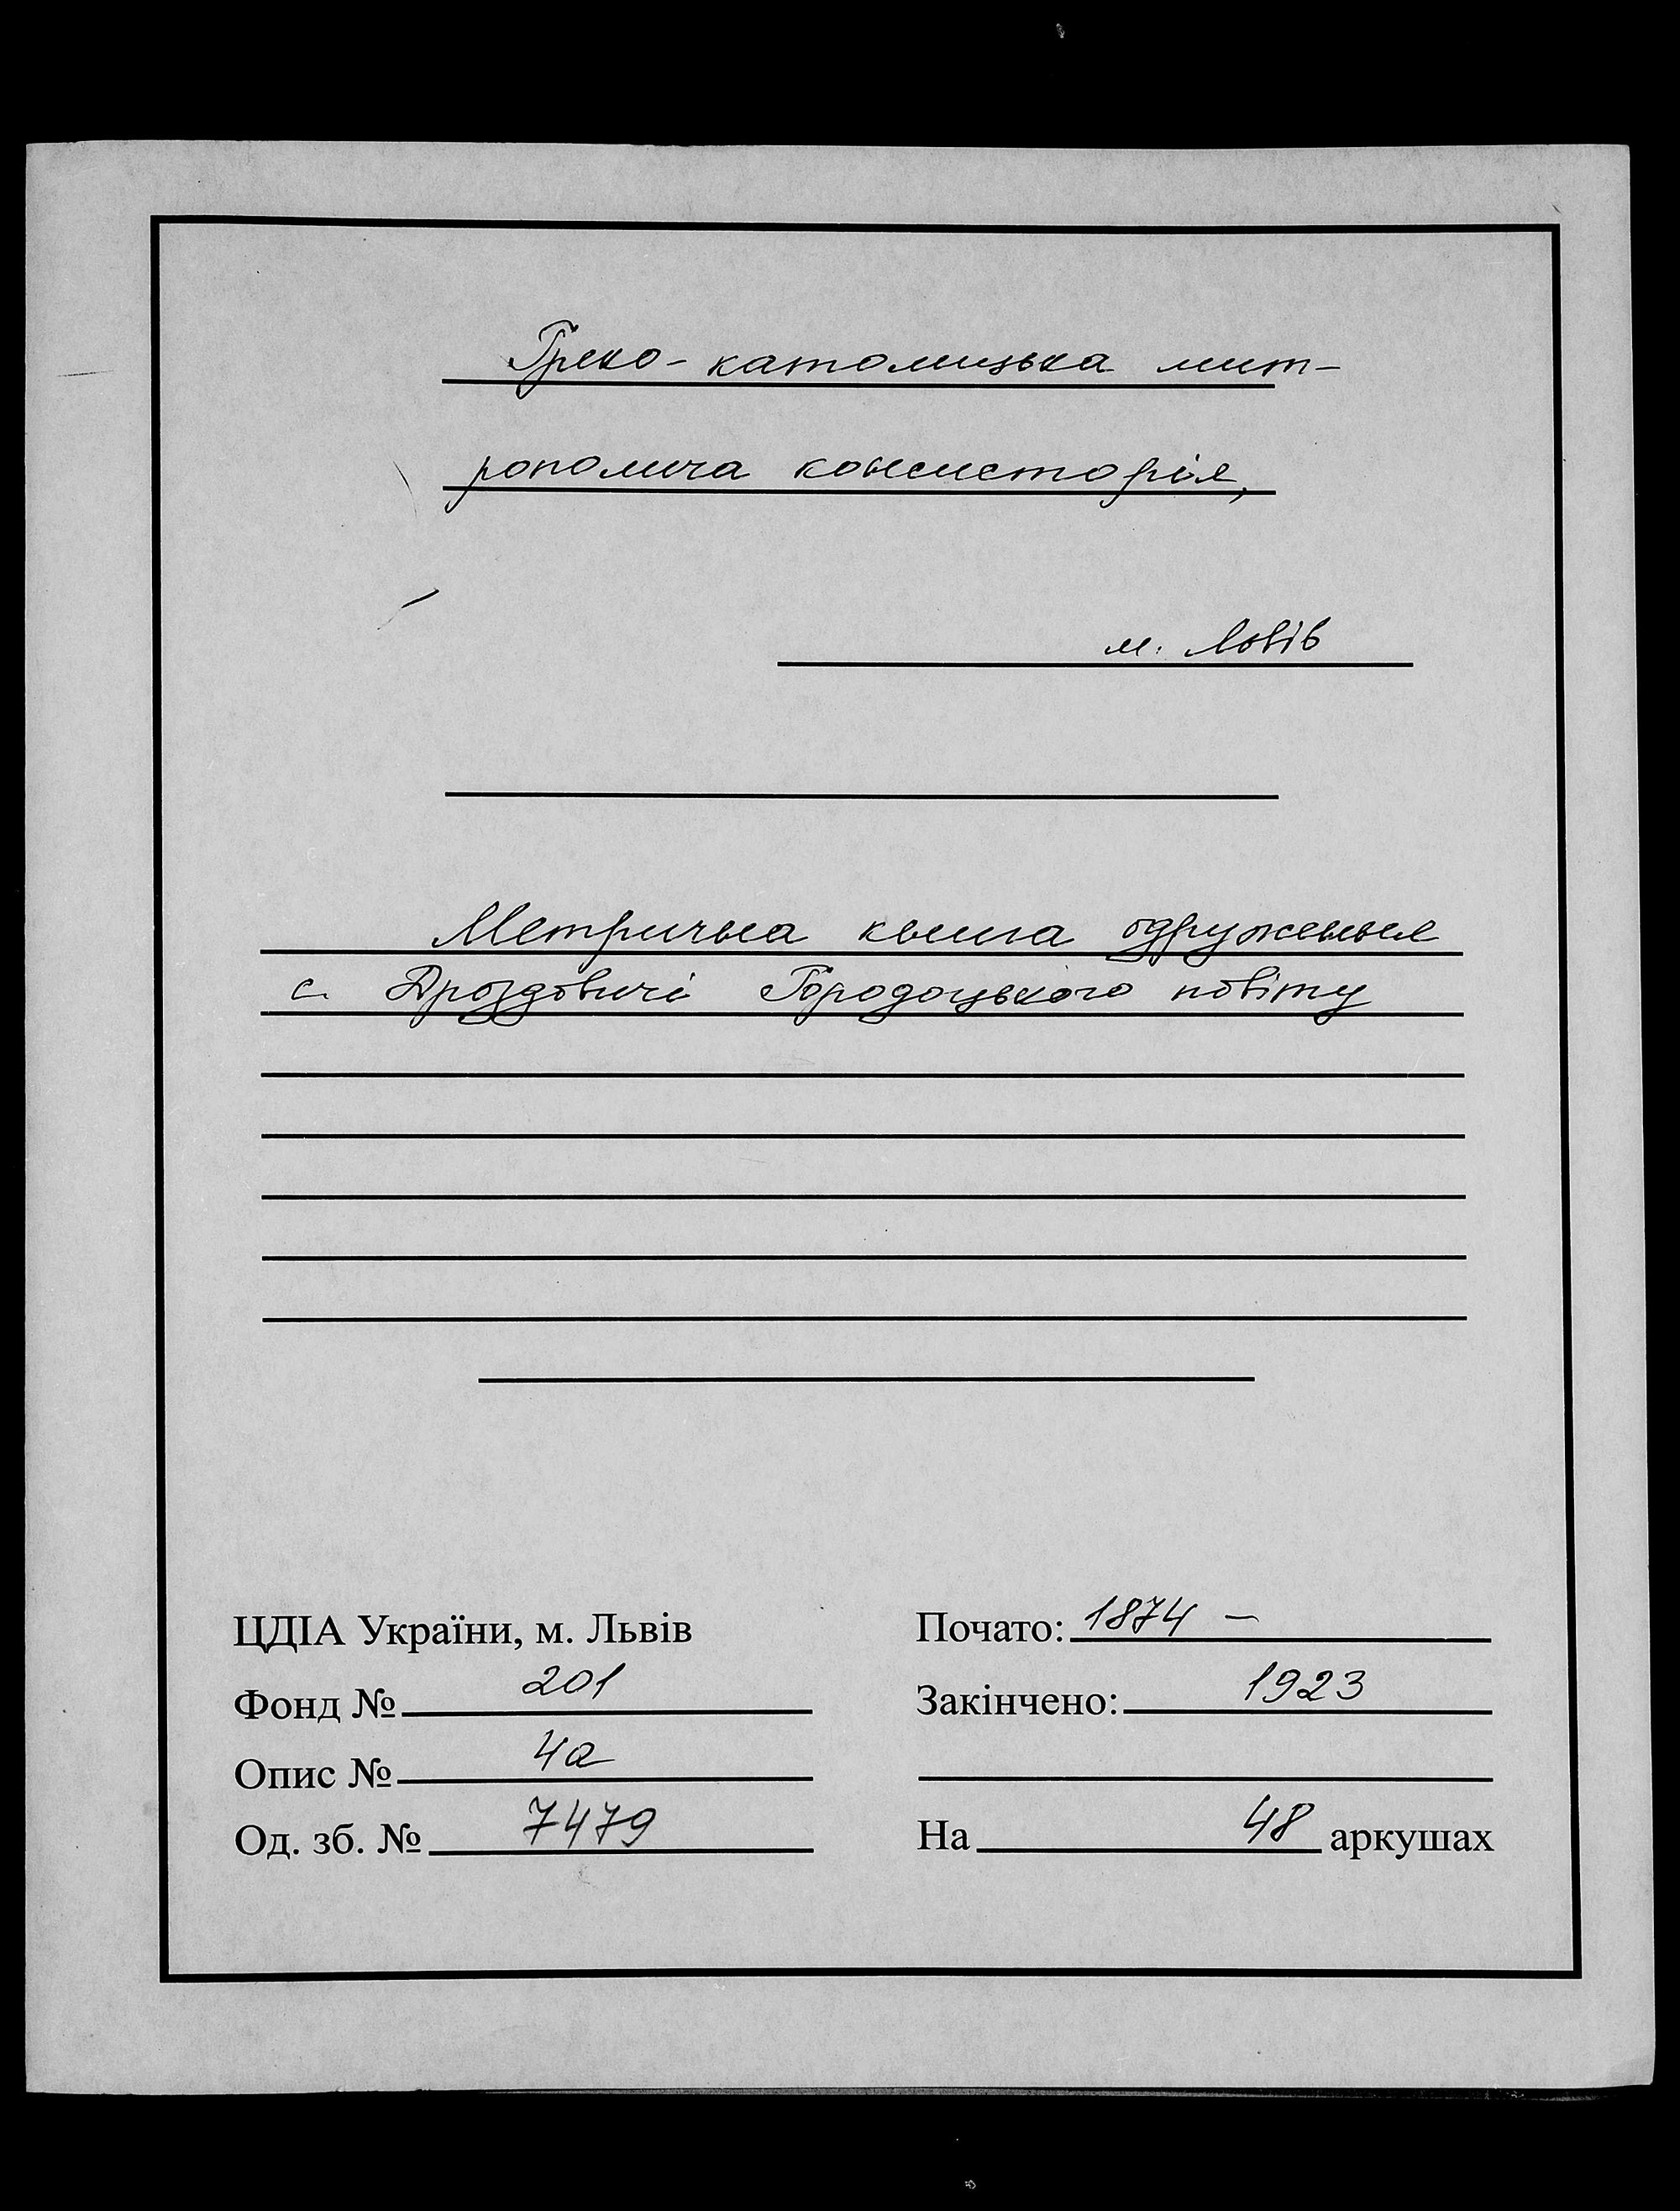 Греко-католицька мит-
рополича консисторія,
м. Львів
Метрична книга одруження
с. Дроздовичі Городоцького повіту
ЦДІА України, м. Львів
Почато: 1874 –
Фонд № 201
Закінчено: 1923
Опис № 4а
Од. зб. № 7479
На 48 аркушах